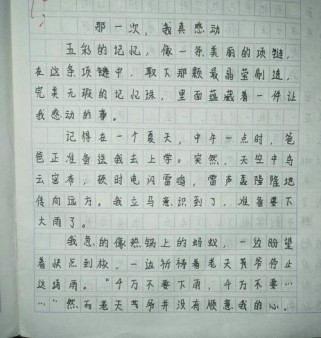 那一次，我真感动
五彩的记忆，像一条美丽的项链，
在这条项链中，取下那颗最晶莹剔透，
完美无瑕的记忆珠，里面蕴藏着一件让
我感动的事。
记得在一个夏天，中午一点时，爸
爸正准备送我去上学。突然，天空中乌
云密布，顿时电闪雷鸣，雷声轰隆隆地
传向远方。我立马意识到了，准备要下
大雨了。
我急的像热锅上的蚂蚁，一边盼望
着快点到校，一边祈祷着老天爷爷停止
这场雨。“千万不要下雨，千万不要…
…”然而老天爷爷并没有顺着我的心。